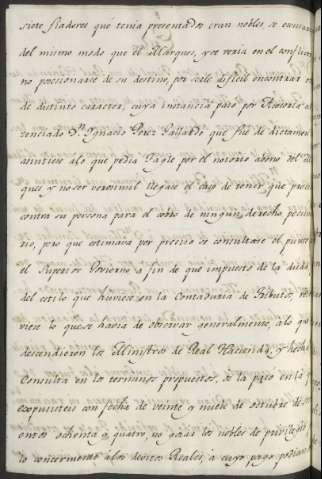 siete fiadores que tenia presentados eran nobles, se
del mismo modo que el Marques, y se veria en el conflicto
no posecionarse de su destino, por serle dificil encontrar
de distinto caracter, cuya instancia paso por Asesoria al
renciado Dn. Ignacio Perez Gallardo que fué de dictamen
se a lo que pedia Tagle por el notorio abono del
ques y no ser verosimil llegase el caso de tener que
contra su persona para el cobro de ningun derecho
rio, pero que estimava por preciso se consultase el punto
el Superior Govierno a fin de que impuesto de la
del estilo que huviese en la Contaduria de Tributos,
viese lo que se havia de observar generalmente, a lo que
descendieron los Ministros de Real Hacienda, y hecha
Consulta en los terminos propuestos, se la paso en la
expusieron con fecha de veinte y nueve de octubre de
entos ochenta y quatro, no gozar los nobles de privilegio
lo concerniente a los devitos Reales, a cuyo pago